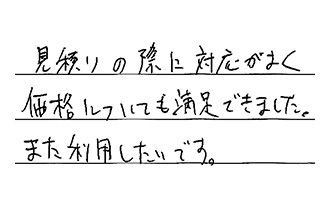 見積りの際に対応がよく
価格についても満足できました。
また利用したいです。